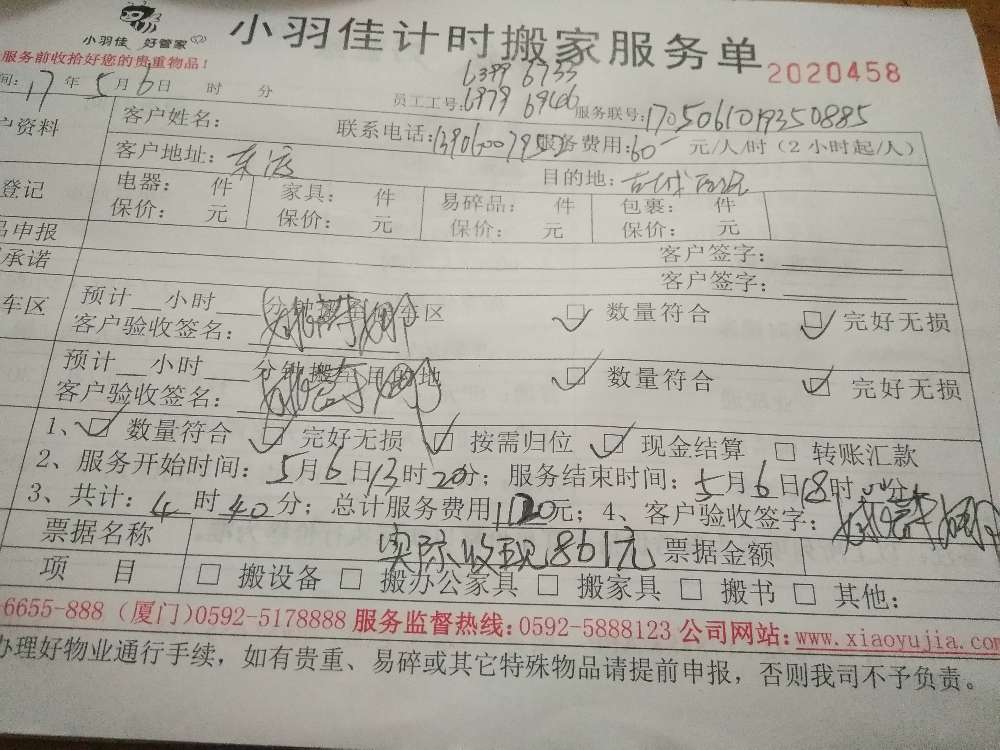 小羽佳 好管家
小羽佳计时搬家服务单
2020458
服务前收拾好您的贵重物品！
间: 17年5月6日 时 分
6399 6733
员工工号: 6979 6966 服务联号: 1705061019350885
户资料
客户姓名: 联系电话: 服务费用: 60 元/人/时（2小时起/人）
客户地址: 东渡 目的地:
登记
电器: 件 家具: 件 易碎品: 件 包裹: 件
保价: 元 保价: 元 保价: 元 保价: 元
品申报
客户签字:
承诺
客户签字:
车区
预计__小时__分钟搬至车区 ☑ 数量符合 ☑ 完好无损
客户验收签名:
预计__小时__分钟搬至目的地 ☑ 数量符合 ☑ 完好无损
客户验收签名:
1、☑ 数量符合 ☑ 完好无损 ☑ 按需归位 ☑ 现金结算 □ 转账汇款
2、服务开始时间: 5月6日13时20分; 服务结束时间: 5月6日18时00分
3、共计: 4时40分; 总计服务费用1120元; 4、客户验收签字:
票据名称 实际收现861元 票据金额
项 目 □ 搬设备 □ 搬办公家具 □ 搬家具 □ 搬书 □ 其他:
6655-888（厦门）0592-5178888 服务监督热线:0592-5888123 公司网站:www.xiaoyujia.com
办理好物业通行手续，如有贵重、易碎或其它特殊物品请提前申报，否则我司不予负责。